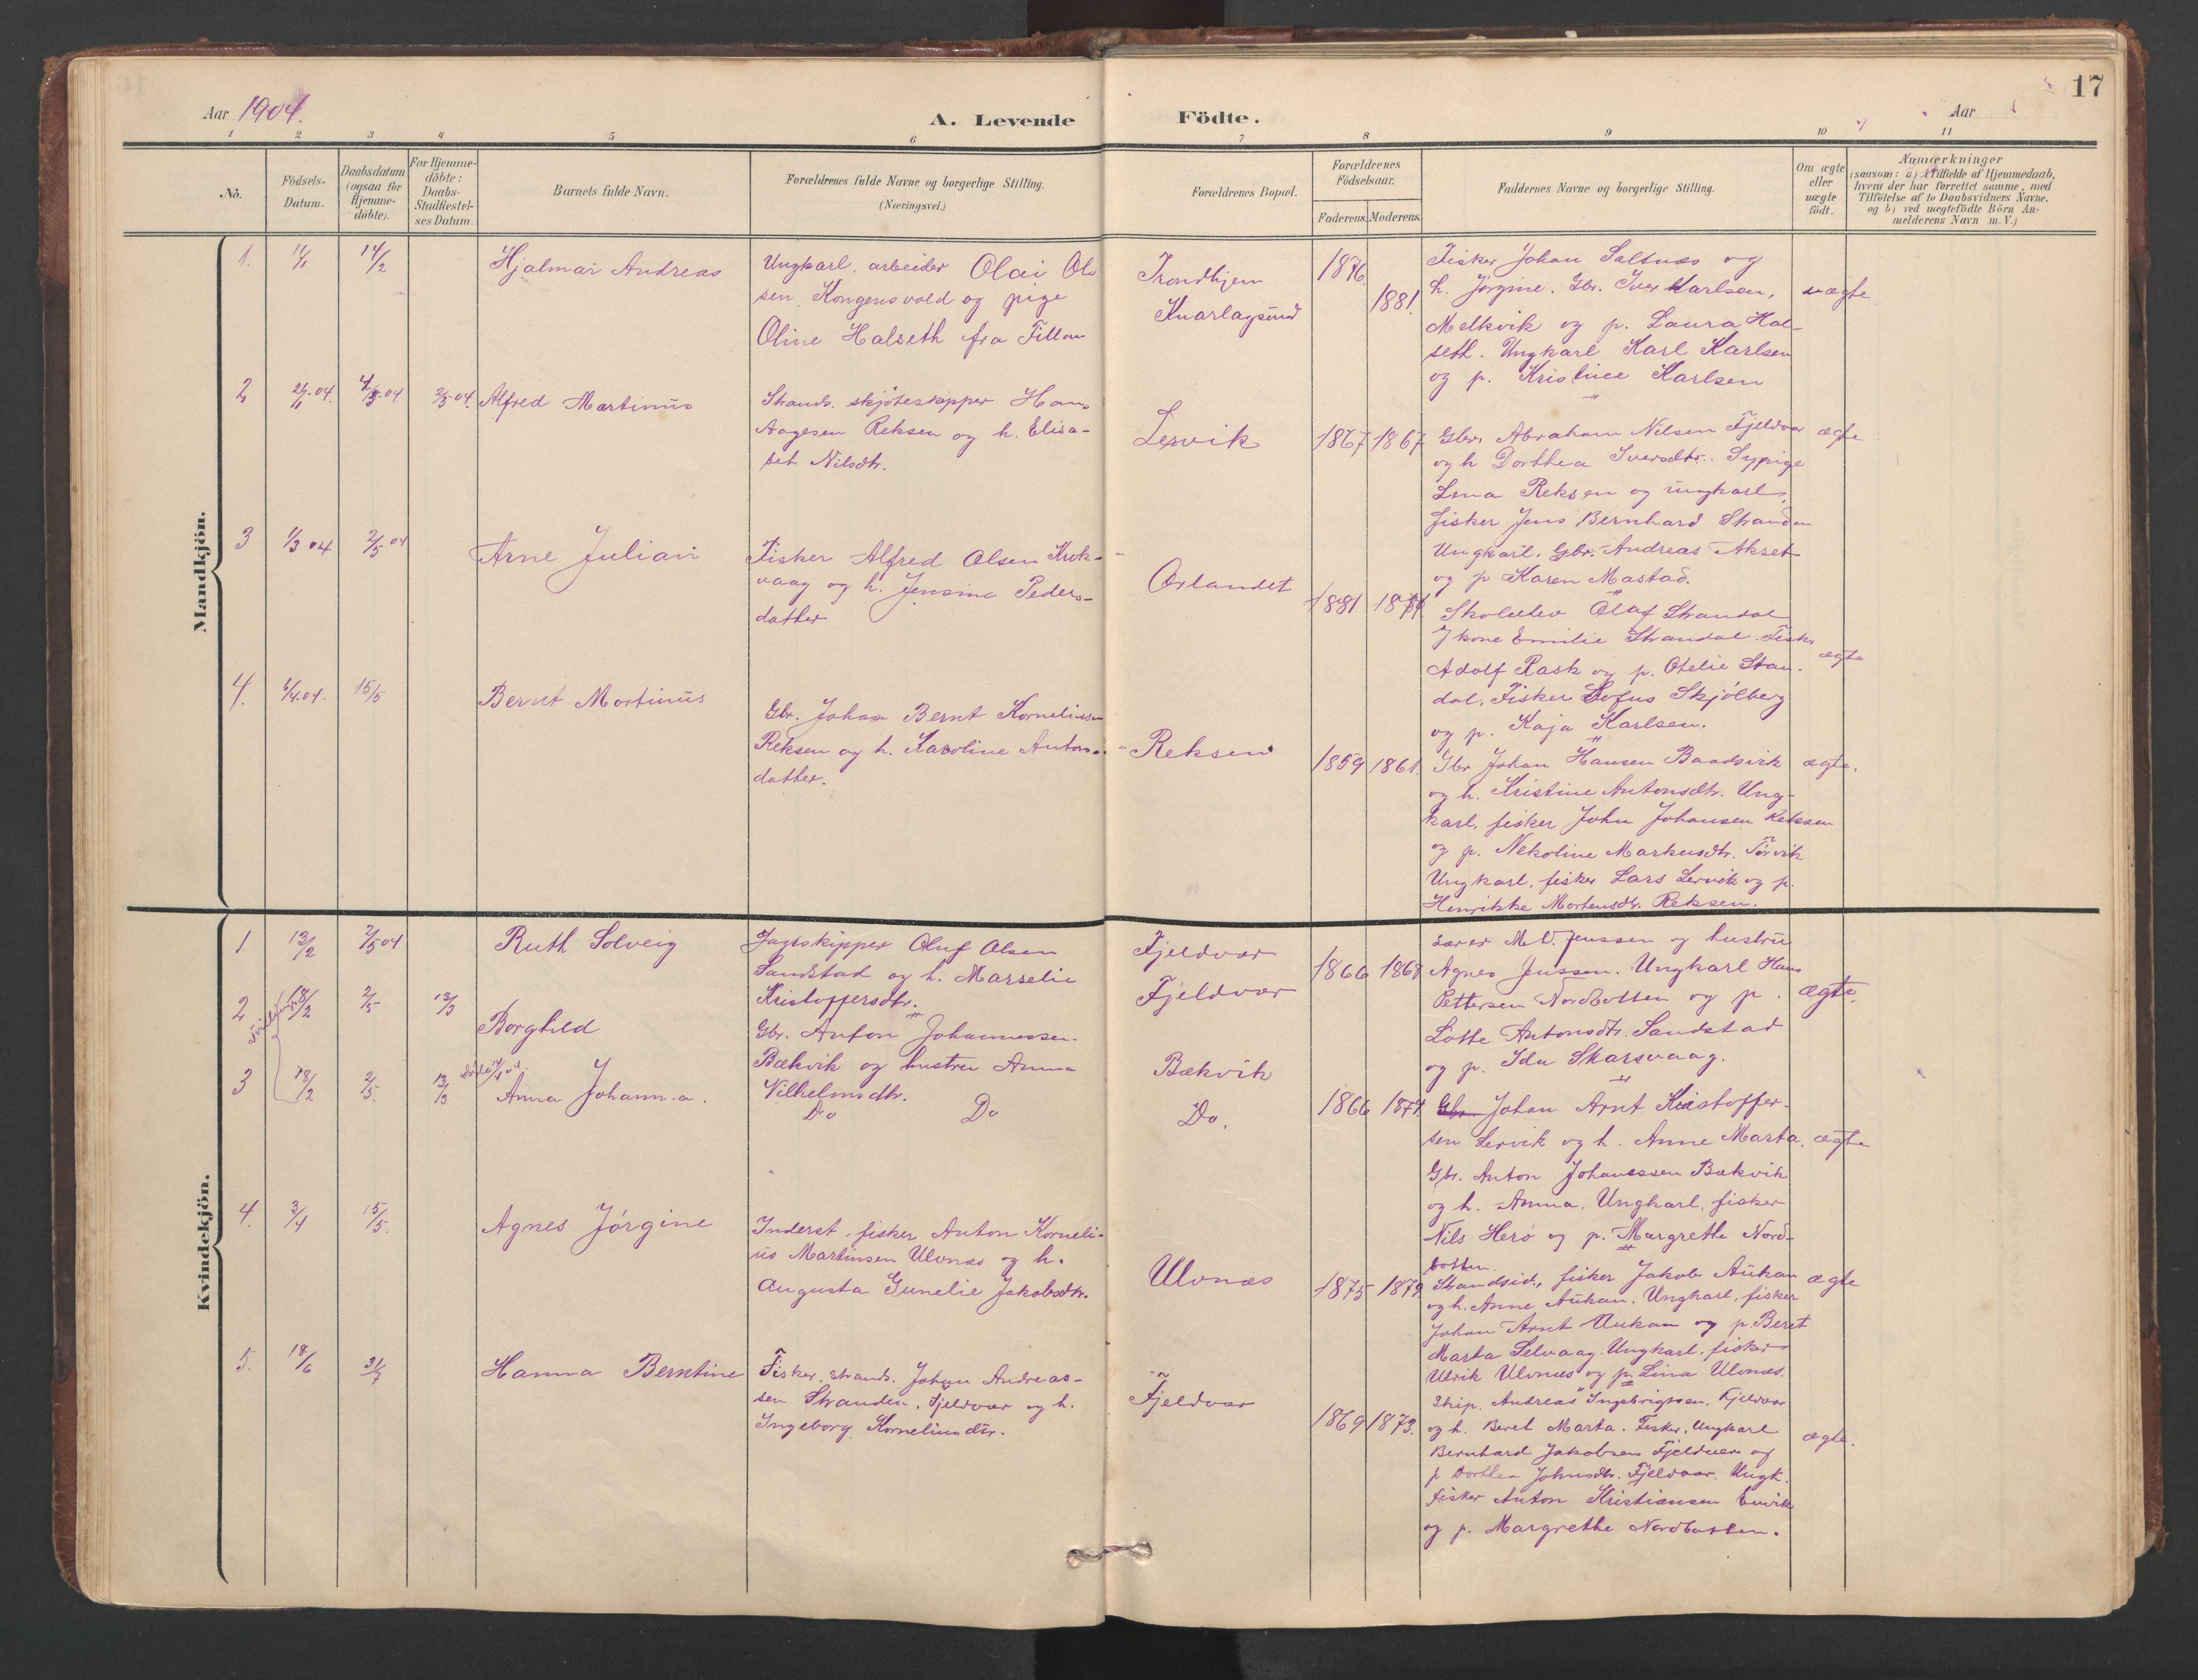 17
Aar 1904.
A. Levende Födte.
Aar
1 2 3 4 5 6 7 8 9 10 11
No.
Födsels-Datum.
Daabsdatum (ogsaa for Hjemme-döbte).
For Hjemme-döbte: Daabs-Stadfæstel-ses Datum.
Barnets fulde Navn.
Forældrenes fulde Navne og borgerlige Stilling.
(Næringsvei.)
Forældrenes Bopæl.
Forældrenes Födselsaar.
Faderens. Moderens.
Faddernes Navne og borgerlige Stilling.
Om ægte eller uægte födt.
Anmærkninger
(saasom: a) i Tilfælde af Hjemmedaab,
hvem der har forrettet samme, med
Tilföielse af to Daabsvidners Navne.
og b) ved uægtefödte Börn An-
melderens Navn m. V.)
Mandkjön.
1. 11/1 14/2 Hjalmar Andreas
Ungkarl, arbeider Olai Ol-
sen Kongensvold og pige
Oline Halseth fra Fillan
Trondhjem
Knarlagsund
1876.
1881.
Fisker Johan Saltnæs og
h. Jørgine. Gbr. Iver Karlsen,
Melkvik og p. Laura Hal-
seth. Ungkarl Karl Karlsen
og p. Kristine Karlsen
uægte
2 2/1-04. 4/3-04 2/5-04. Alfred Martinus
Strands. skjøteskipper Hans
Aagesen Reksen og h. Elisa-
bet Nilsdtr.
Lervik
1867 1867
Gbr. Abraham Nilsen Fjeldvær
og h Dorthea Iversdtr. Sypige
Lena Reksen og ungkarl,
fisker Jens Bernhard Stranden
Ungkarl, Gbr. Andreas Akset
og p Karen Mastad.
ægte
3 1/3 04 2/5 04 Arne Julian
Fisker Alfred Olsen Krok-
vaag og h. Jensine Peders-
datter
Ørlandet
1881
Skoleelev Olaf Strandal
Ikone Emilie Strandal. Fisker
Adolf Rask og p. Otelie Stan-
dal. Fisker Sofus Skjølberg
og p. Kaja Karlsen.
ægte
4. 6/4.04. 15/5 Bernt Mortinus
Gbr. Johan Bernt Kornelius
Reksen og h. Karoline Anton-
datter.
Reksen
1859 1861.
Gbr Johan Hansen Baadsvik
og h. Kristine Antonsdtr. Ung-
karl, fisker John Johansen Reksen
og p. Nekoline Markusdtr. Tørvik
Ungkarl, fisker Lars Lervik og p.
Henrikke Mortensdtr. Reksen.
ægte.
Kvindekjön.
1 13/2 2/5 04 Ruth Solveig
Jagtskipper Oluf Olsen
Sandstad og h. Marselie
Kristoffersdtr.
Fjeldvær
Fjeldvær
1866 1868
Lærer M. V. Jenssen og hustru
Agnes Jenssen. Ungkarl Hans
Pettersen Nordbotten og p.
Lotte Antonsdtr. Sandstad
og p. Ida Skarsvaag.
ægte.
Tvillinger
2 18/2 2/5 13/3 Borghild
Gbr. Anton Johannessen
Bækvik og hustru Anna
Vilhelmsdtr.
Bækvik
1866 1874.
Gbr. Johan Arnt Kristoffer-
sen Lervik og h. Anne Marta.
Gbr. Anton Johanessen Bækvik
og h. Anna. Ungkarl, fisker
Nils Herø og p. Margrethe Nord-
botten.
ægte
3 18/2 2/5. 13/3 Anna Johanna.
Do Do
Do.
4. 3/4 15/5. Agnes Jørgine
Inderst, fisker Anton Korneli-
us Martinsen Ulvnæs og h.
Augusta Gunelie Jakobsdtr.
Ulvnæs
1875 1879.
Strandsid., fisker Jakob Aukan
og h. Anne Aukan. Ungkarl, fisker
Johan Arnt Aukan og p. Beret
Marta Selvaag. Ungkarl, fisker
Ulrik Ulvnæs og p. Lina Ulvnæs.
ægte
5. 18/6 31/7 Hanna Berntine
Fisker, strands. Johan Andreas-
sen Stranden, Fjeldvær og h.
Ingeborg Korneliusdtr.
Fjeldvær
1869 1873.
Skip. Andreas Ingebrigtsen, Fjeldvær
og h. Beret Marta. Fisker, Ungkarl
Bernhard Jakobsen Fjeldvær og
p Dorthea Johnsdtr. Fjeldvær. Ungk.
fisker Anton Kristiansen Envik
og p. Margrethe Nordbotten.
ægte.